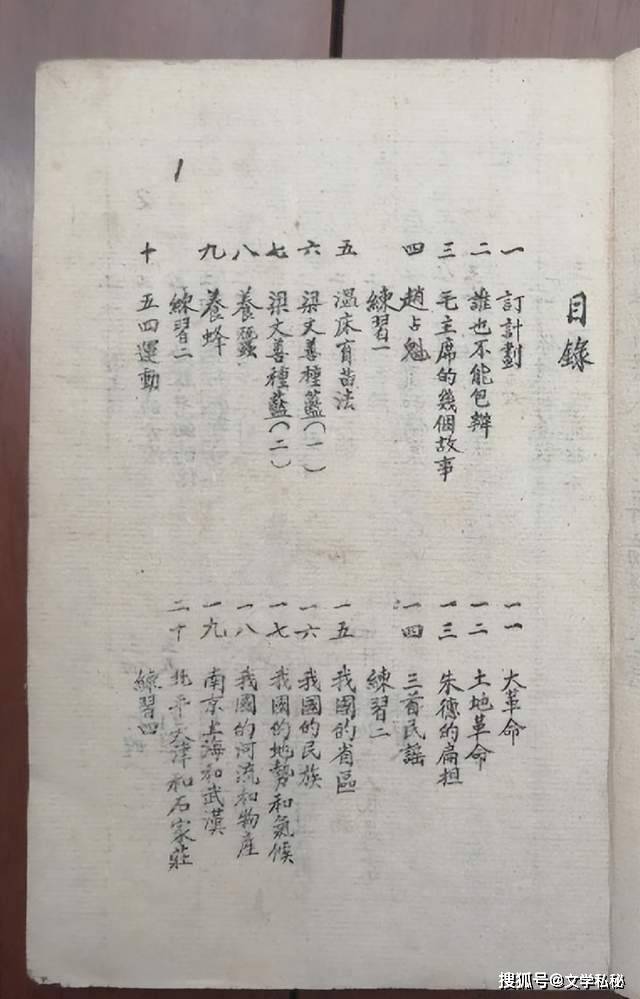 目錄
一 訂計劃
二 誰也不能包辦
三 毛主席的幾個故事
四 趙占魁
練習一
五 溫床育苗法
六 梁文善種藍(一)
七 梁文善種藍(二)
八 養蠶
九 養蜂
練習二
十 五四運動
一一 大革命
一二 土地革命
一三 朱德的扁担
一四 三首民謠
練習二
一五 我國的省區
一六 我國的民族
一七 我國的地勢和氣候
一八 我國的河流和物產
一九 南京上海和武漢
二十 北平天津和石家莊
練習四
1
搜狐号@文学私秘